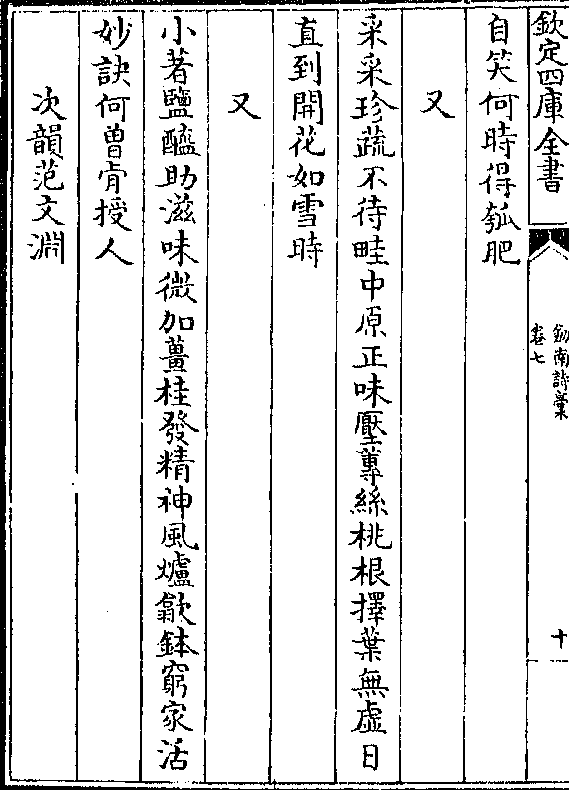 欽定四庫全書
劔南詩稾
卷七
十
自笑何時得瓠肥
又
采采珍蔬不待畦中原正味壓蓴絲桃根擇葉無虛日
直到開花如雪時
又
小著鹽醯助滋味微加薑桂發精神風爐歙鉢窮家活
妙訣何曽肯授人
次韻范文淵